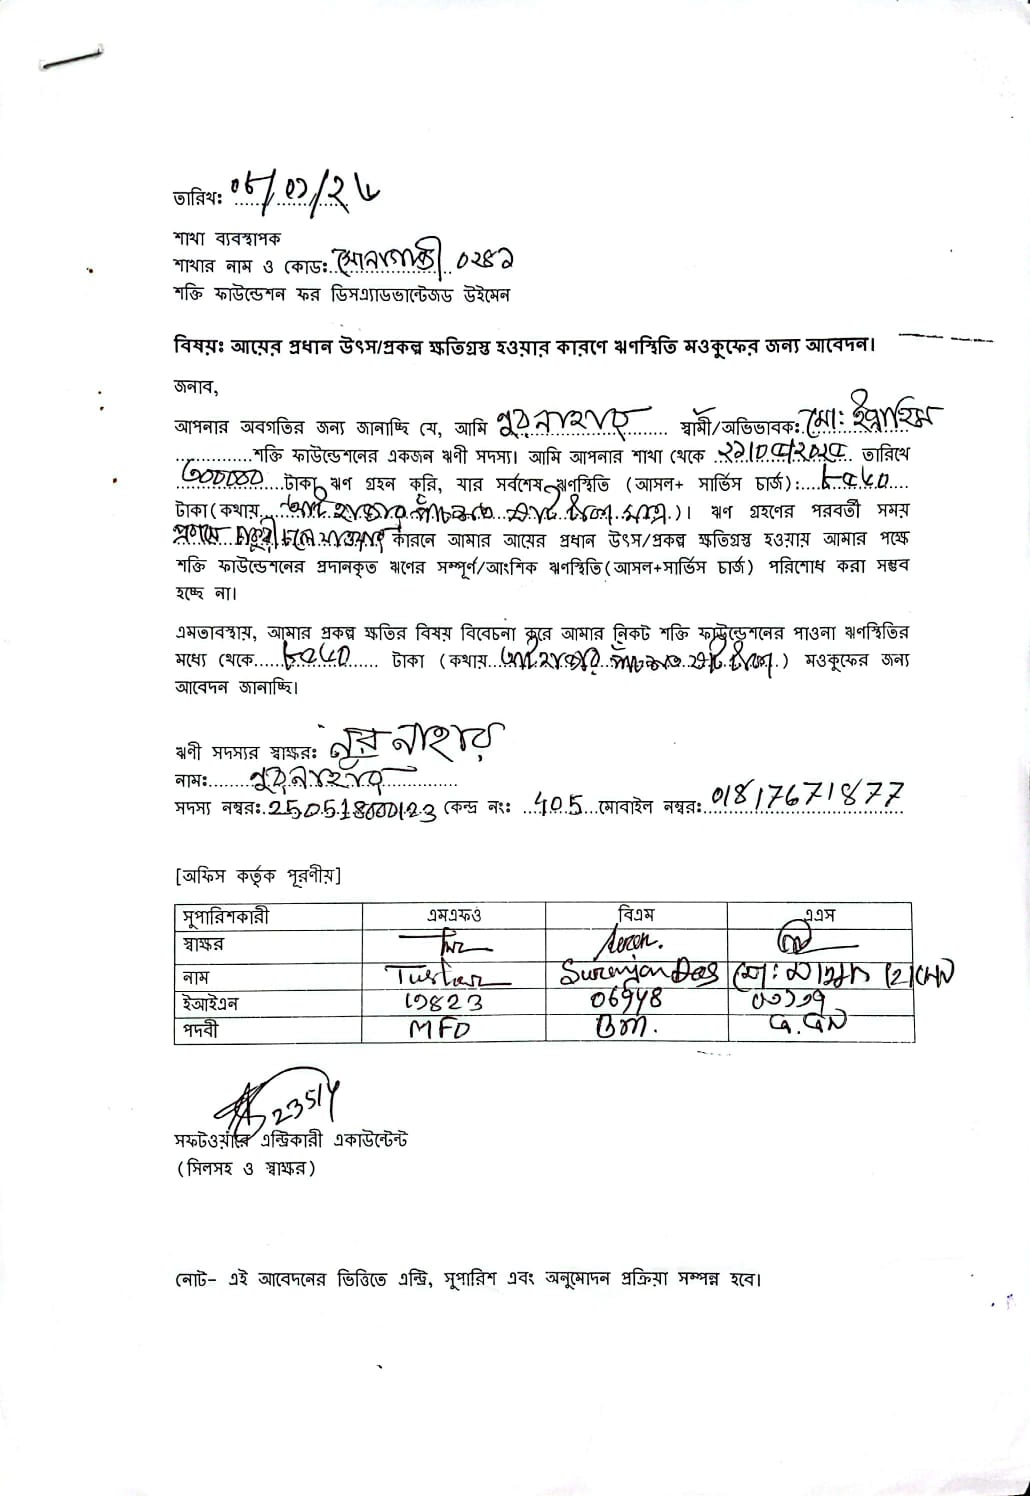 তারিখ: ০৮/০১/২৬
শাখা ব্যবস্থাপক
শাখার নাম ও কোড: সোনাগাজী ০২৪১
শক্তি ফাউন্ডেশন ফর ডিসএ্যাডভান্টেজড উইমেন
বিষয়: আয়ের প্রধান উৎস/প্রকল্প ক্ষতিগ্রস্ত হওয়ার কারণে ঋণস্থিতি মওকুফের জন্য আবেদন।
জনাব,
আপনার অবগতির জন্য জানাচ্ছি যে, আমি নুর নাহার স্বামী/অভিভাবক: মো: ইব্রাহিম
শক্তি ফাউন্ডেশনের একজন ঋণী সদস্য। আমি আপনার শাখা থেকে তারিখে
টাকা ঋণ গ্রহন করি, যার সর্বশেষ ঋণস্থিতি (আসল+ সার্ভিস চার্জ): ৮৫৬০
টাকা (কথায় আট হাজার পাঁচশত ষাট টাকা মাত্র)। ঋণ গ্রহণের পরবর্তী সময়
কারনে আমার আয়ের প্রধান উৎস/প্রকল্প ক্ষতিগ্রস্ত হওয়ায় আমার পক্ষে
শক্তি ফাউন্ডেশনের প্রদানকৃত ঋণের সম্পূর্ণ/আংশিক ঋণস্থিতি(আসল+সার্ভিস চার্জ) পরিশোধ করা সম্ভব
হচ্ছে না।
এমতাবস্থায়, আমার প্রকল্প ক্ষতির বিষয় বিবেচনা করে আমার নিকট শক্তি ফাউন্ডেশনের পাওনা ঋণস্থিতির
মধ্যে থেকে ৮৫৬০ টাকা (কথায় আট হাজার পাঁচশত ষাট টাকা) মওকুফের জন্য
আবেদন জানাচ্ছি।
ঋণী সদস্যর স্বাক্ষর: নুর নাহার
নাম: নুর নাহার
সদস্য নম্বর: কেন্দ্র নং: 405 মোবাইল নম্বর: 01817671877
[অফিস কর্তৃক পূরণীয়]
সুপারিশকারী এমএফও বিএম এএস
স্বাক্ষর
নাম Tushar Suranjan Das
ইআইএন
পদবী MFO BM.
সফটওয়্যারে এন্ট্রিকারী একাউন্টেন্ট
(সিলসহ ও স্বাক্ষর)
নোট- এই আবেদনের ভিত্তিতে এন্ট্রি, সুপারিশ এবং অনুমোদন প্রক্রিয়া সম্পন্ন হবে।